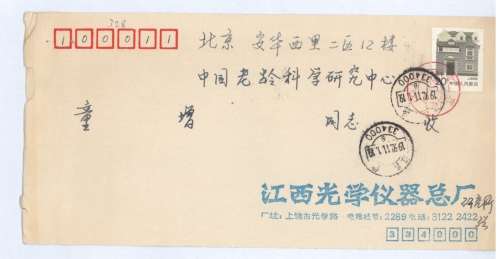 328
100011
北京 安华西里二区12楼
中国老龄科学研究中心
童 增 同志 收
20 中国人民邮政
334000
334000
江西光学仪器总厂
厂址：上饶市光学路 电报挂号：2289 电话：3122 2422
334000